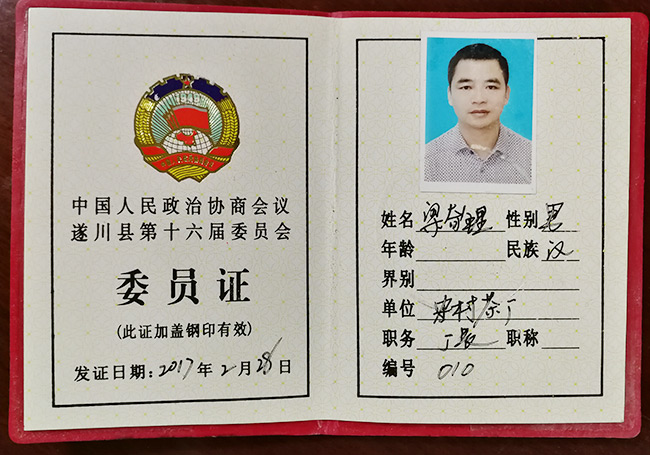 中国人民政治协商会议
遂川县第十六届委员会
委员证
(此证加盖钢印有效)
发证日期: 2017年2月28日
姓名 梁奇理 性别 男
年龄 民族 汉
界别
单位 梁村茶厂
职务 厂长 职称
编号 010